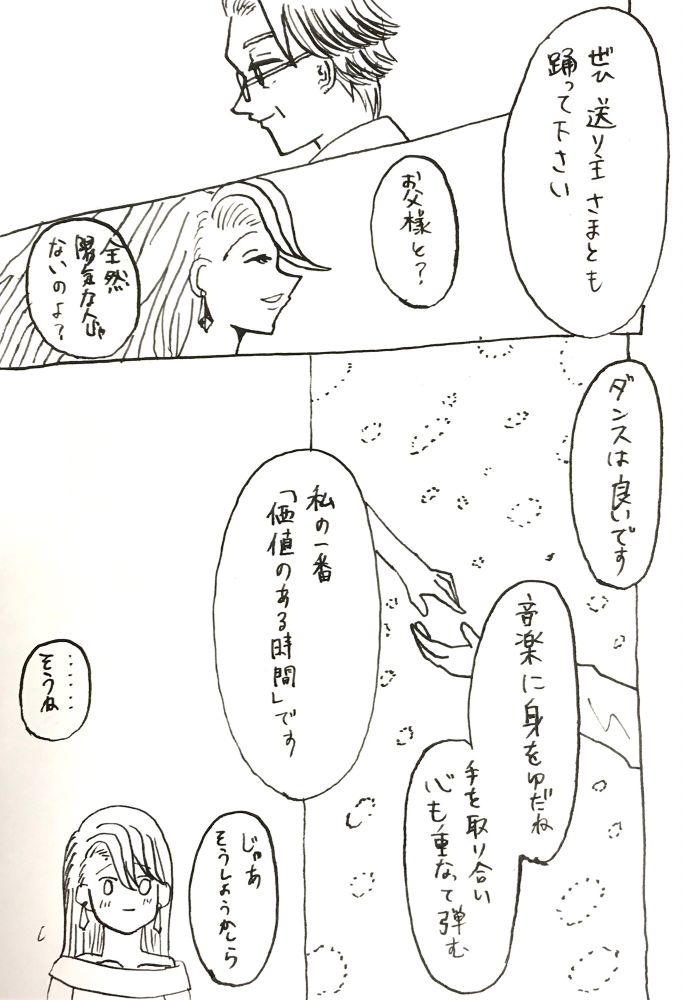 ぜひ 送り主 さまとも
踊って下さい
お父様と?
全然
陽気な人じゃ
ないのよ?
ダンスは良いです
音楽に身をゆだね
手を取り合い
心も重なって弾む
私の一番
「価値のある時間」です
‥‥‥
そうね
じゃあ
そうしようかしら